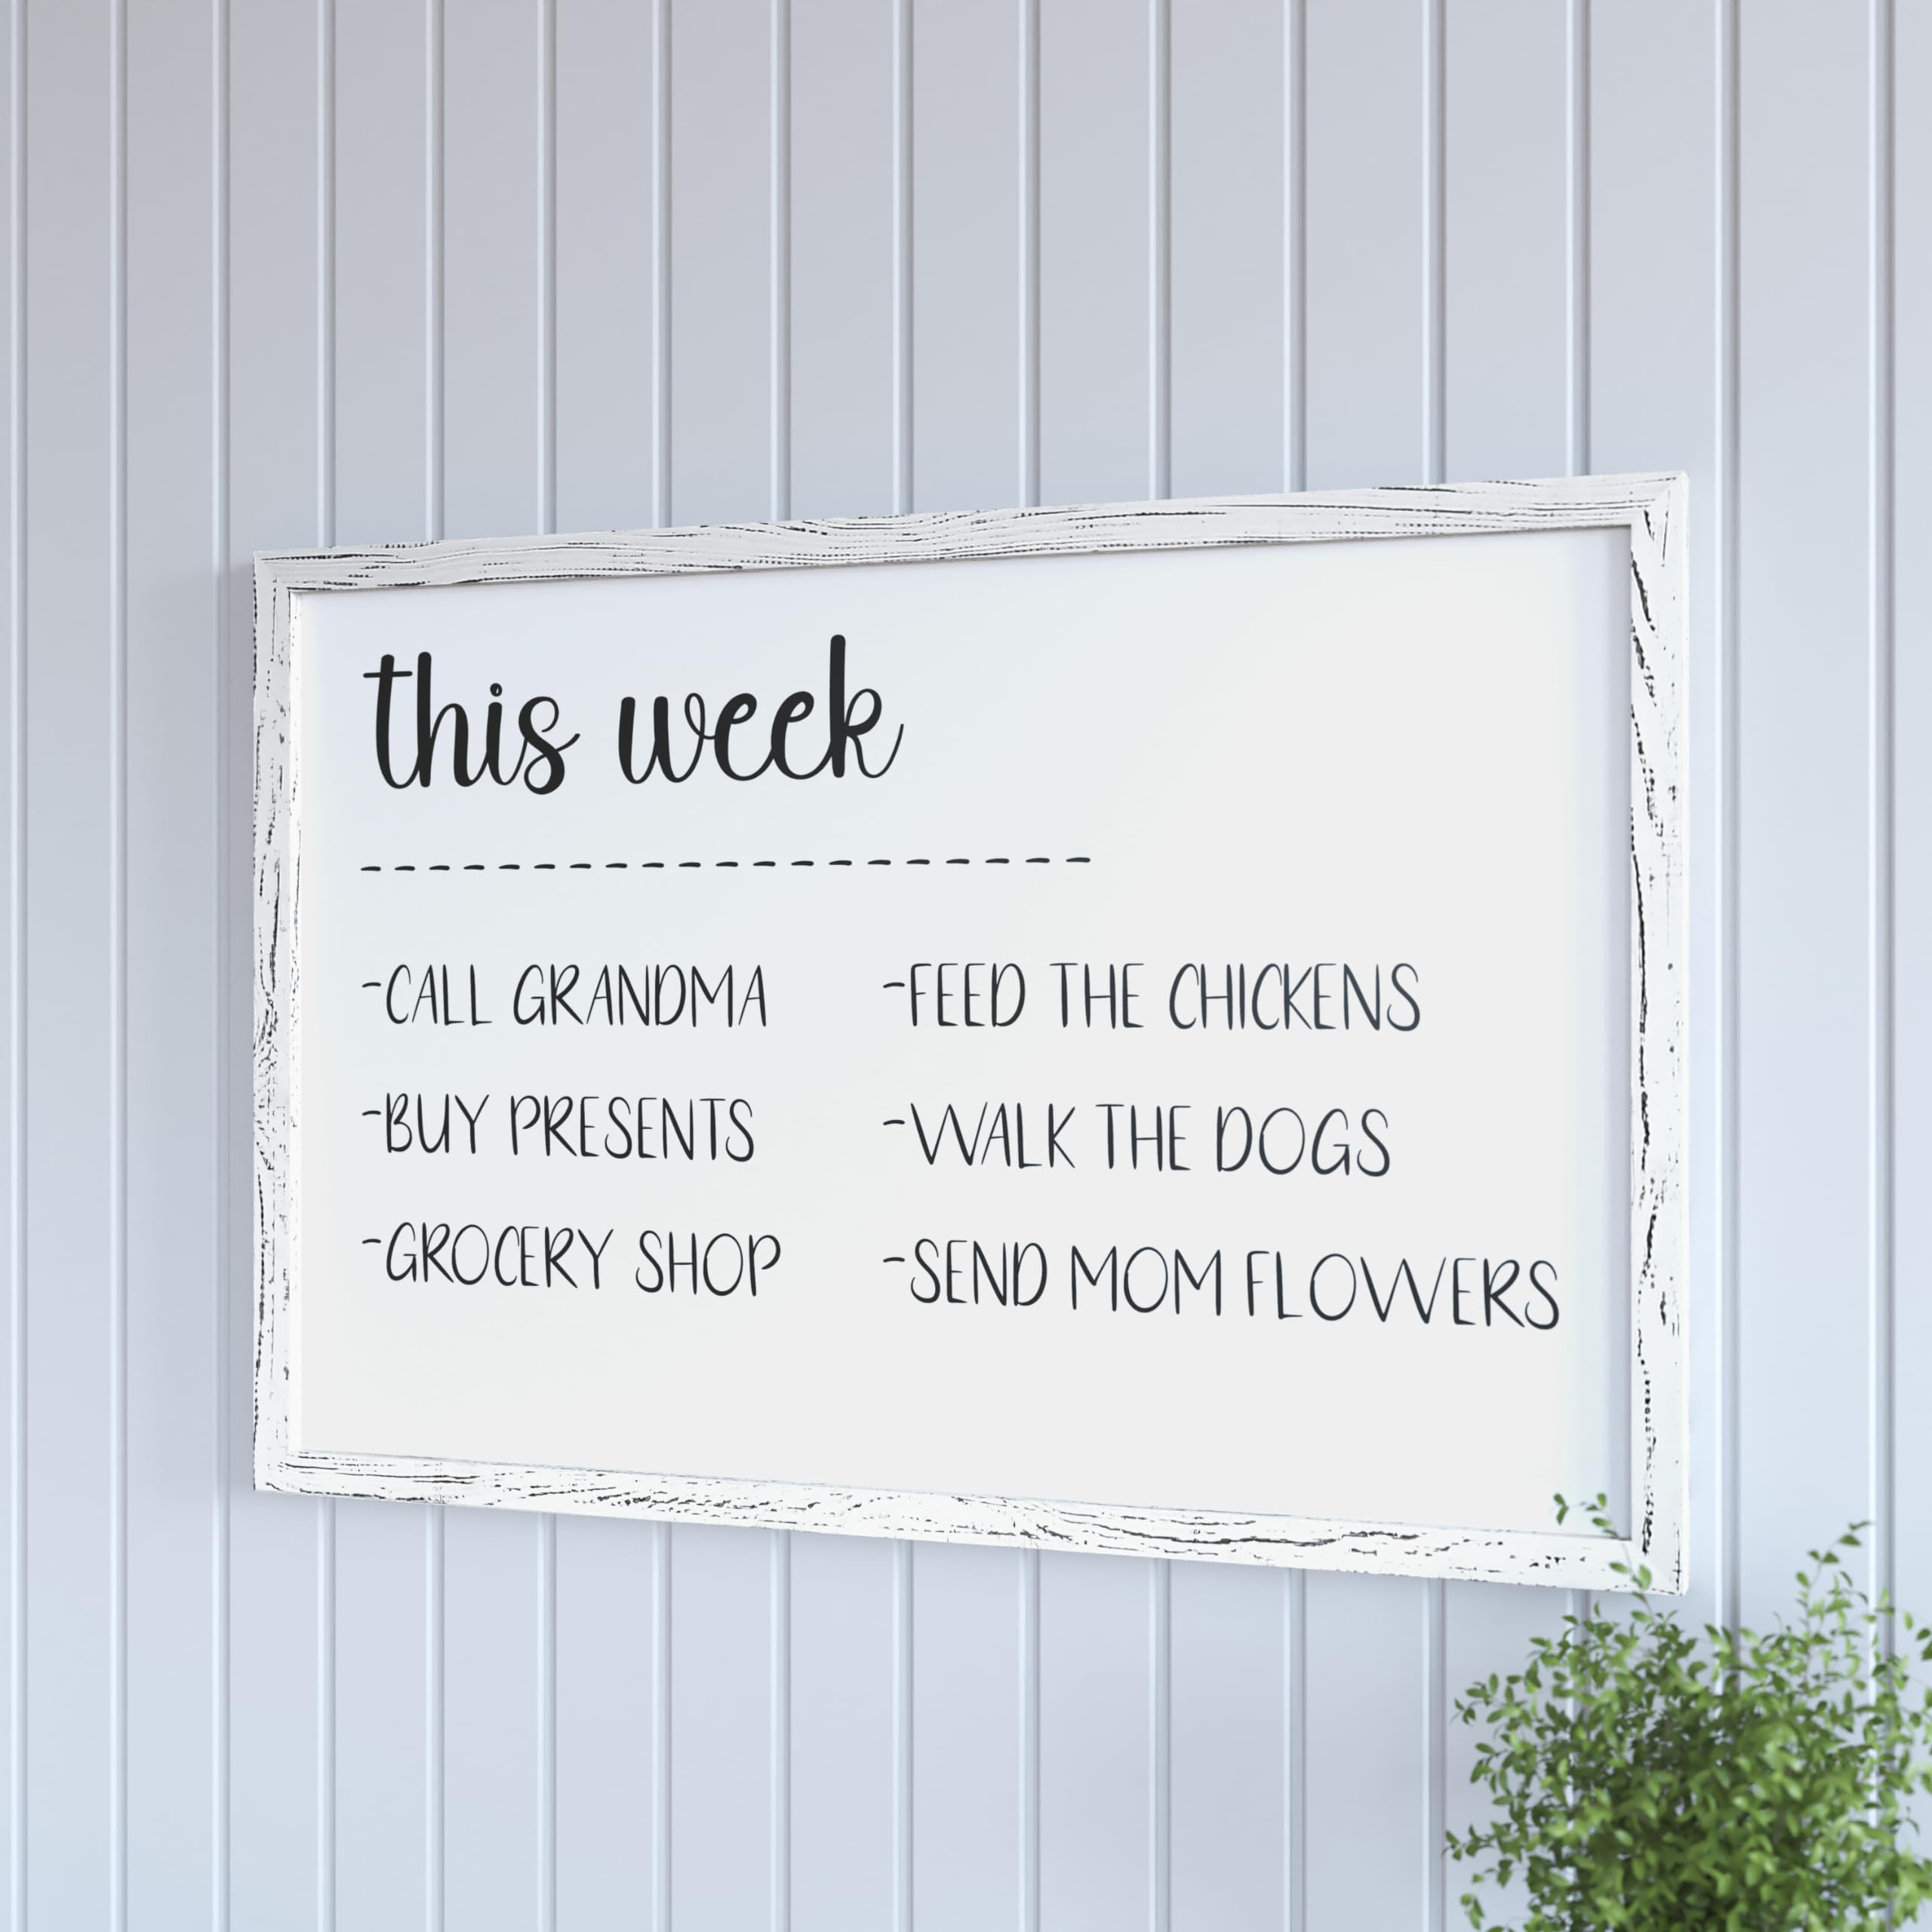 this week
--------------------
-CALL GRANDMA
-BUY PRESENTS
-GROCERY SHOP
-FEED THE CHICKENS
-WALK THE DOGS
-SEND MOM FLOWERS